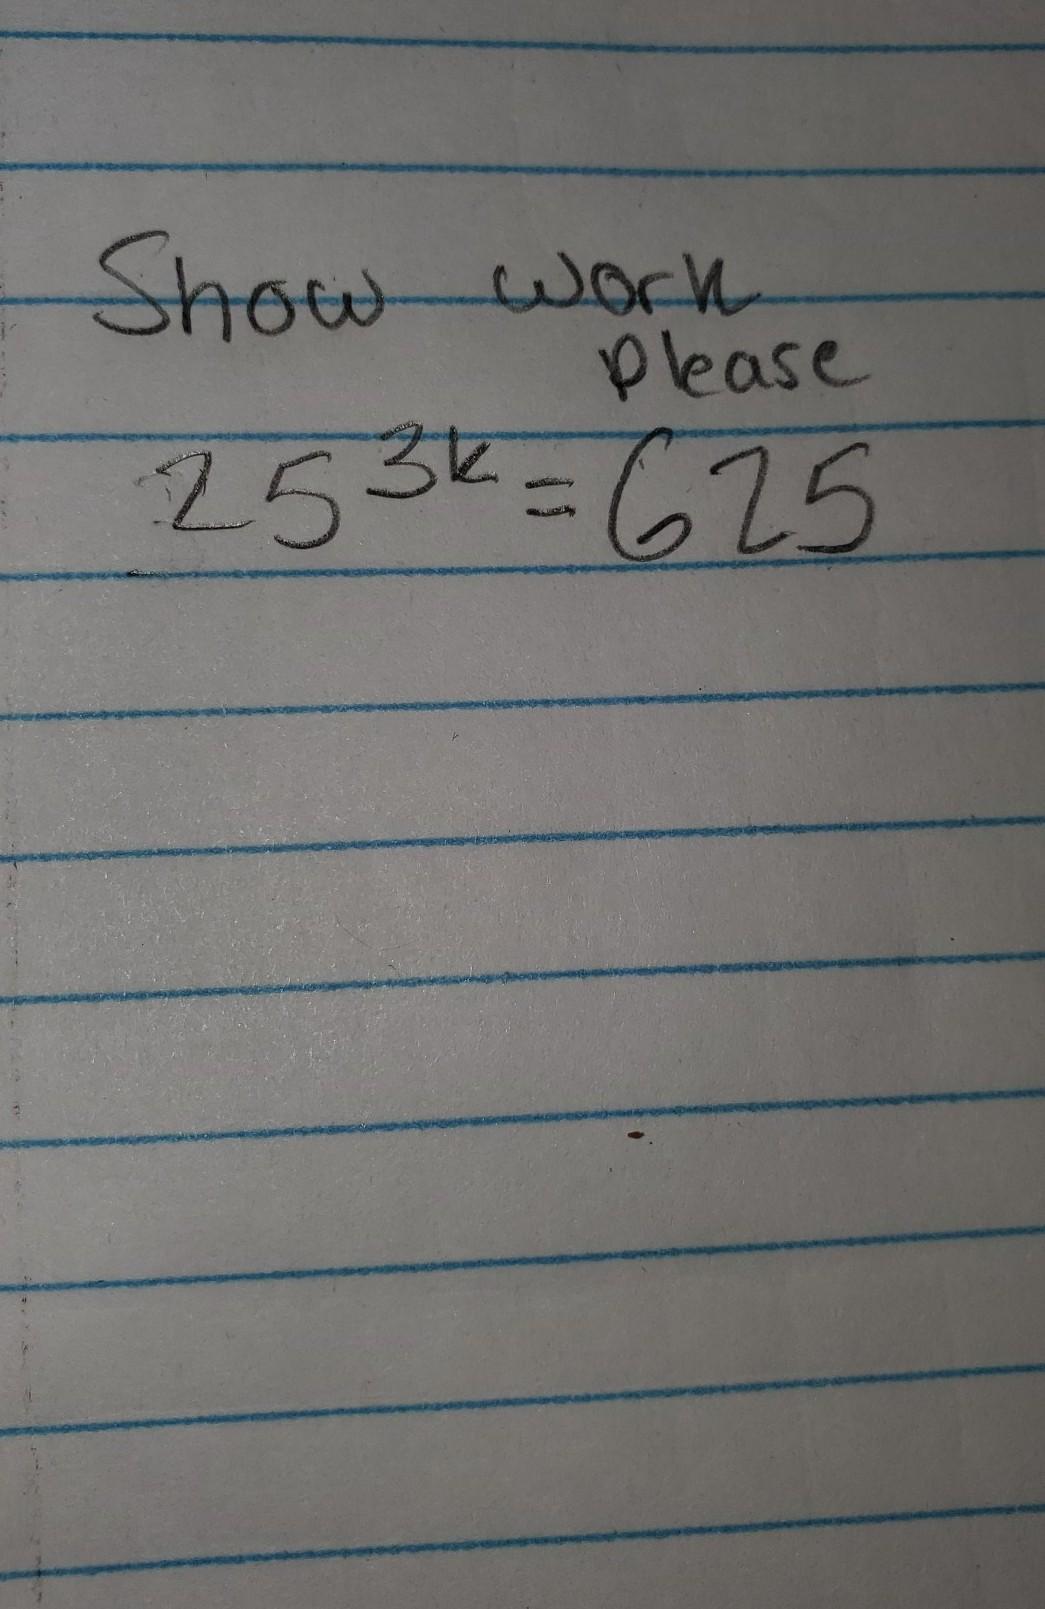 Show work
please
25^3k = 625